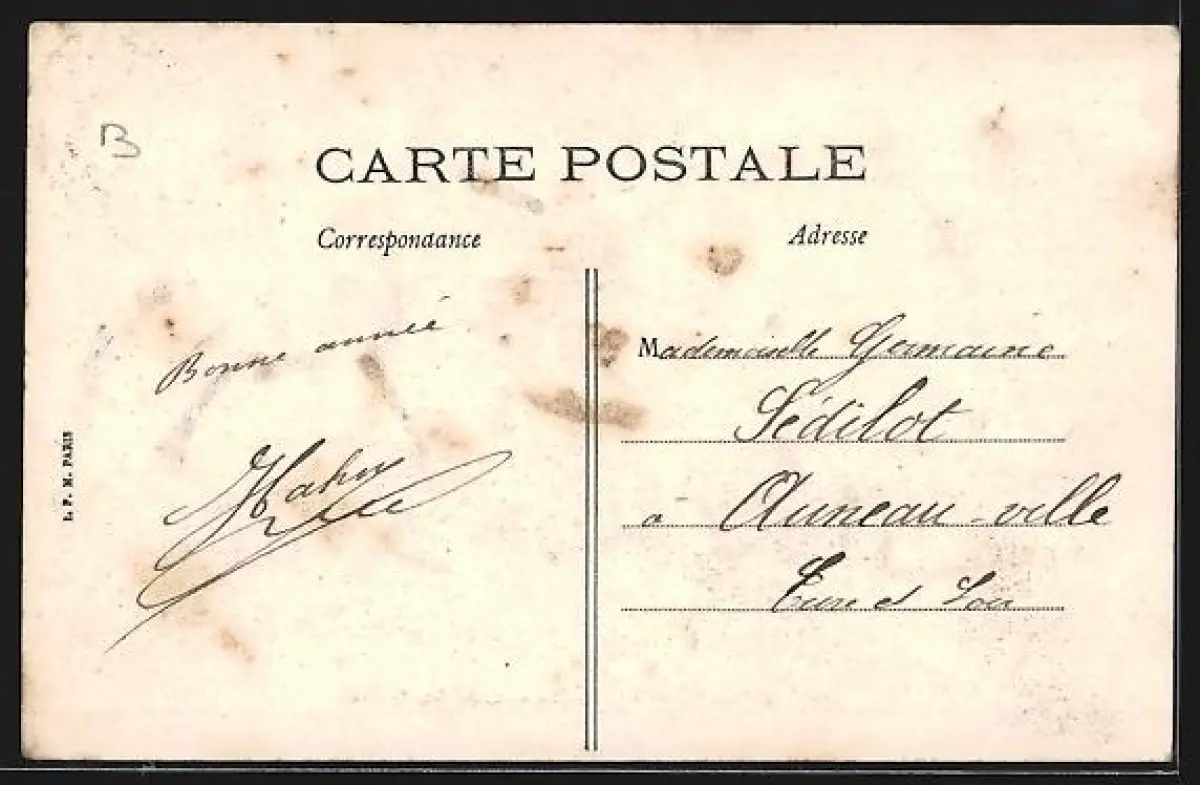 B
CARTE POSTALE
Correspondance
Adresse
Bonne année
Hahn
L. P. M. PARIS
Mademoiselle Germaine
Sédilot
à Auneau-ville
Eure et Loir